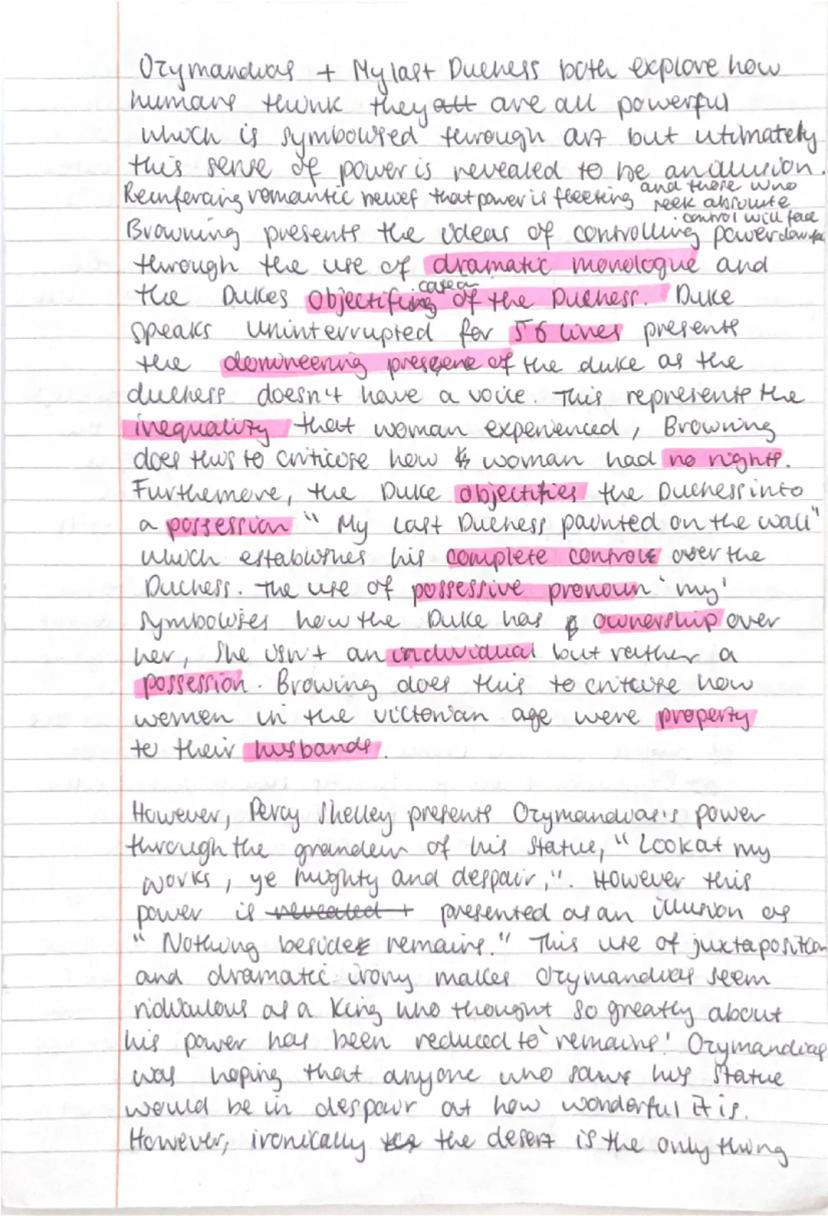 Ozymandias + My last Duchess both explore how
humans think they all are all powerful
which is symbolised through art but utimately
this sense of power is revealed to be an illusion.
Reinforcing romantic belief that power is fleeting and those who
seek absolute
control will face
Browning presents the ideas of controlling power downfall
through the use of dramatic monologue and
the Dukes objectifing of the Duchess. Duke
speaks uninterrupted for 56 lines presents
the domineering presence of the duke as the
duchess doesn't have a voice. This represents the
inequality that woman experienced, Browning
does this to criticise how woman had no rights.
Furthemore, the Duke objectifies the Duchess into
a possession " My Last Duchess painted on the wall"
which establishes his complete control over the
Duchess. The use of possessive pronoun 'my'
symbolises how the Duke has ownership over
her, she isn't an individual but rather a
possession. Browing does this to criticise how
women in the victorian age were property
to their husbands.
However, Percy Shelley presents Ozymandias's power
through the grandeur of his statue, " Look at my
works, ye mighty and despair,". However this
power is revealed t presented as an illusion as
" Nothing beside remains." This use of juxtaposition
and dramatic irony makes Ozymandias seem
ridiculous as a King who thought so greatly about
his power has been reduced to 'remains'. Ozymandias
was hoping that anyone who saw his statue
would be in despair at how wonderful it is.
However, ironically the desert is the only thing